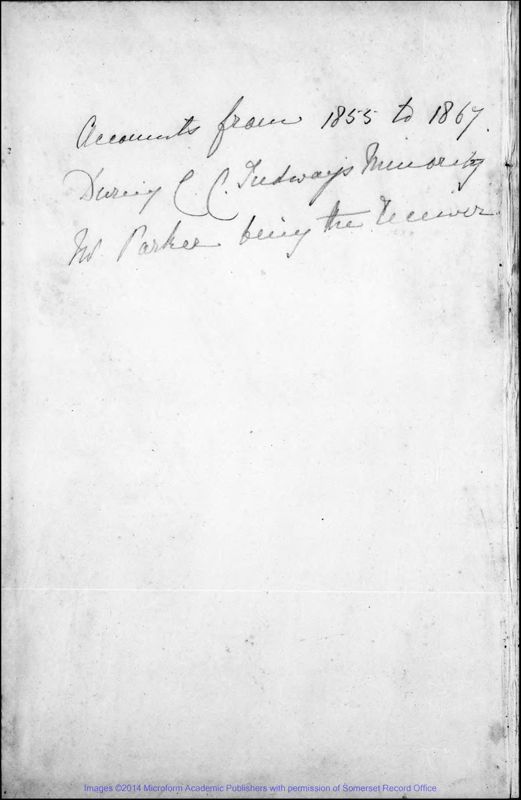 Accounts from 1855 to 1867.
During C. C. Tudways Minority
Mr Parker being the Receiver.
Images ©2014 Microform Academic Publishers with permission of Somerset Record Office